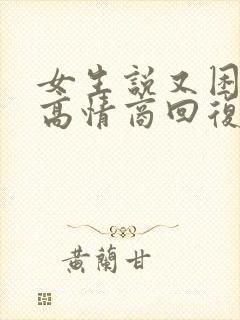 女生說又困
高情商回復
黃蘭甘